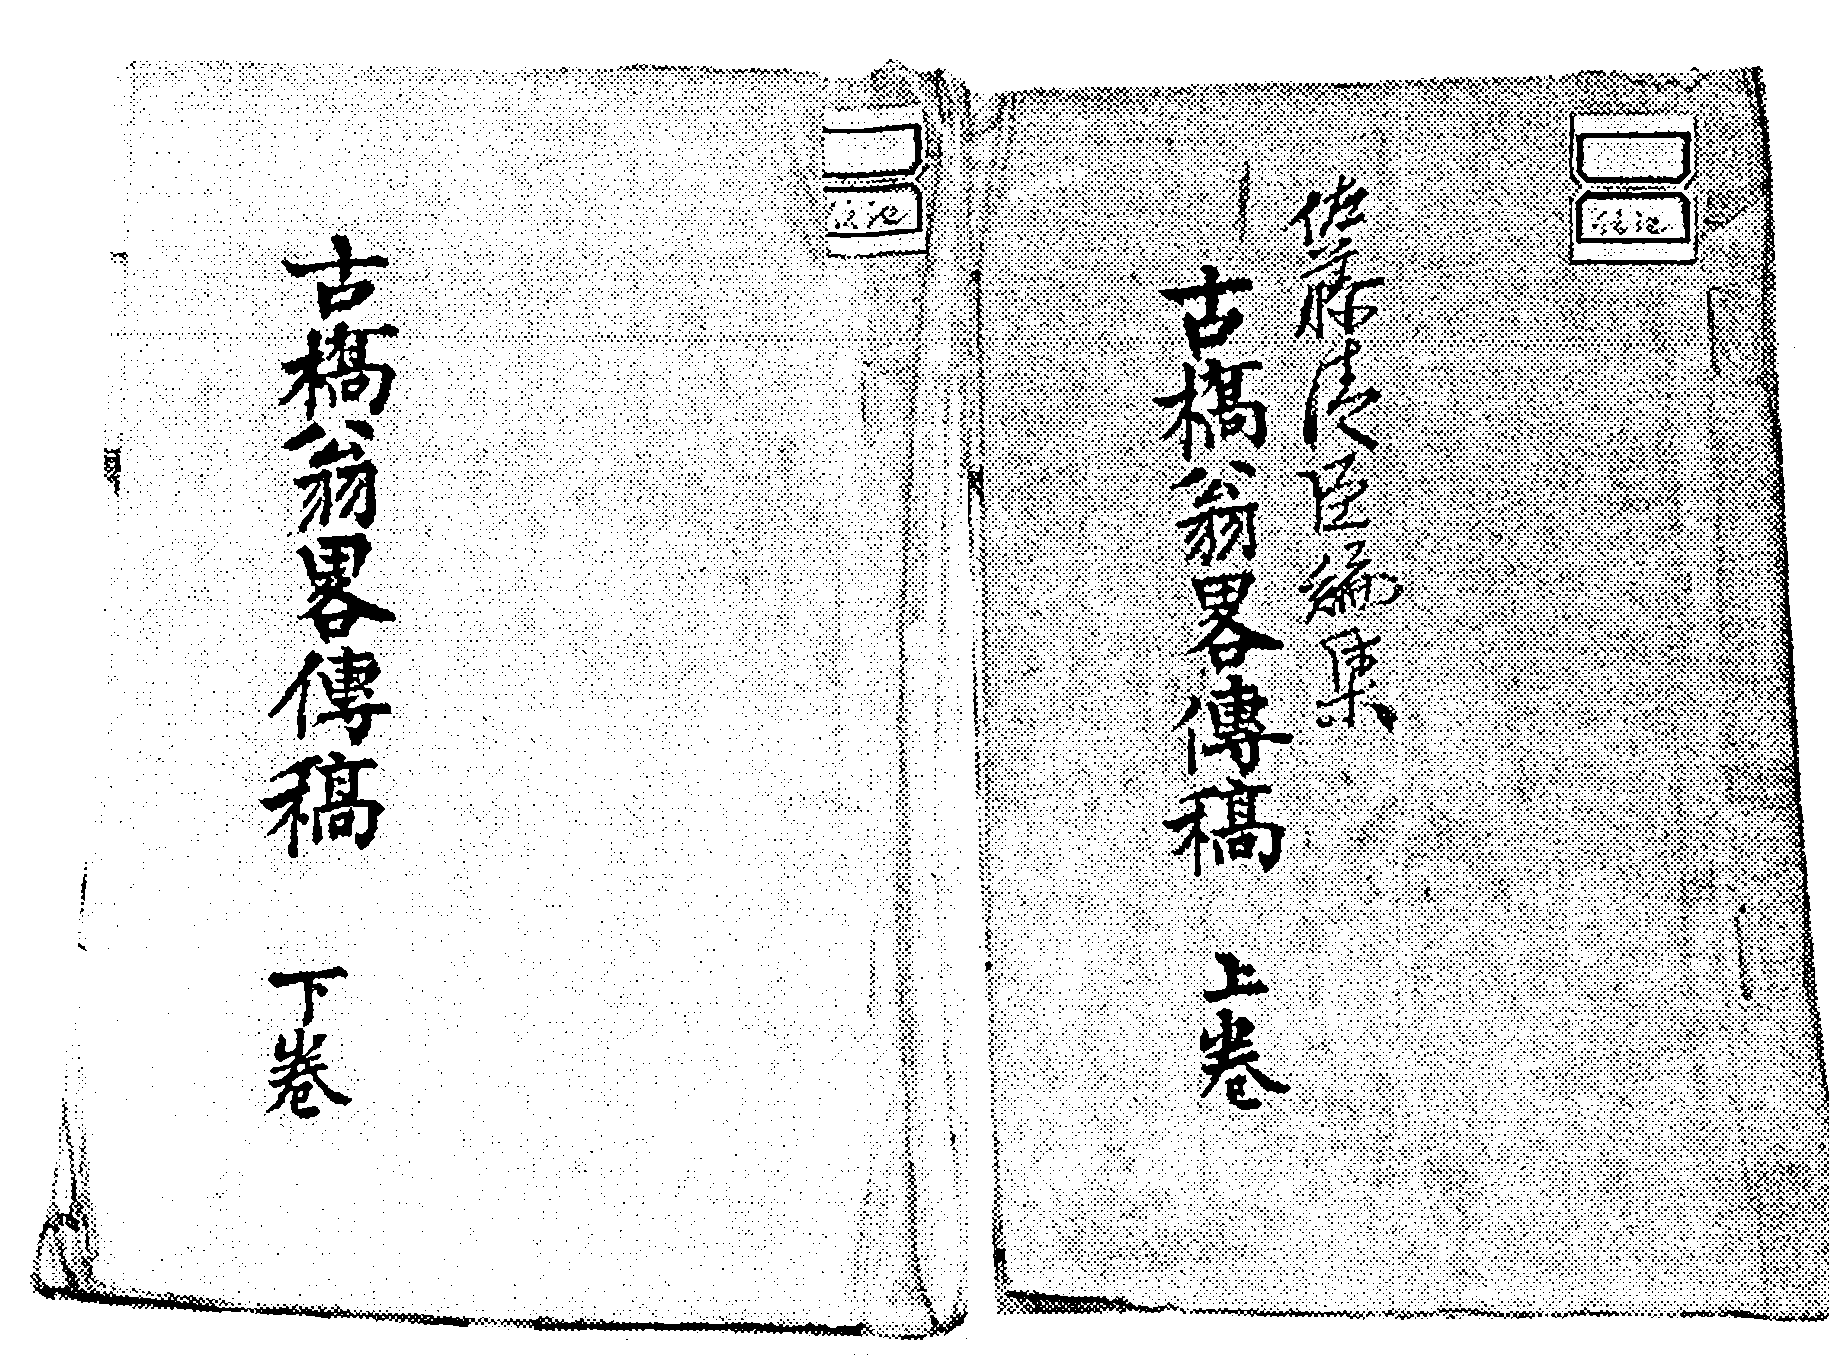 佐藤清臣編集
古橋翁畧傳稿 上巻
古橋翁畧傳稿 下巻